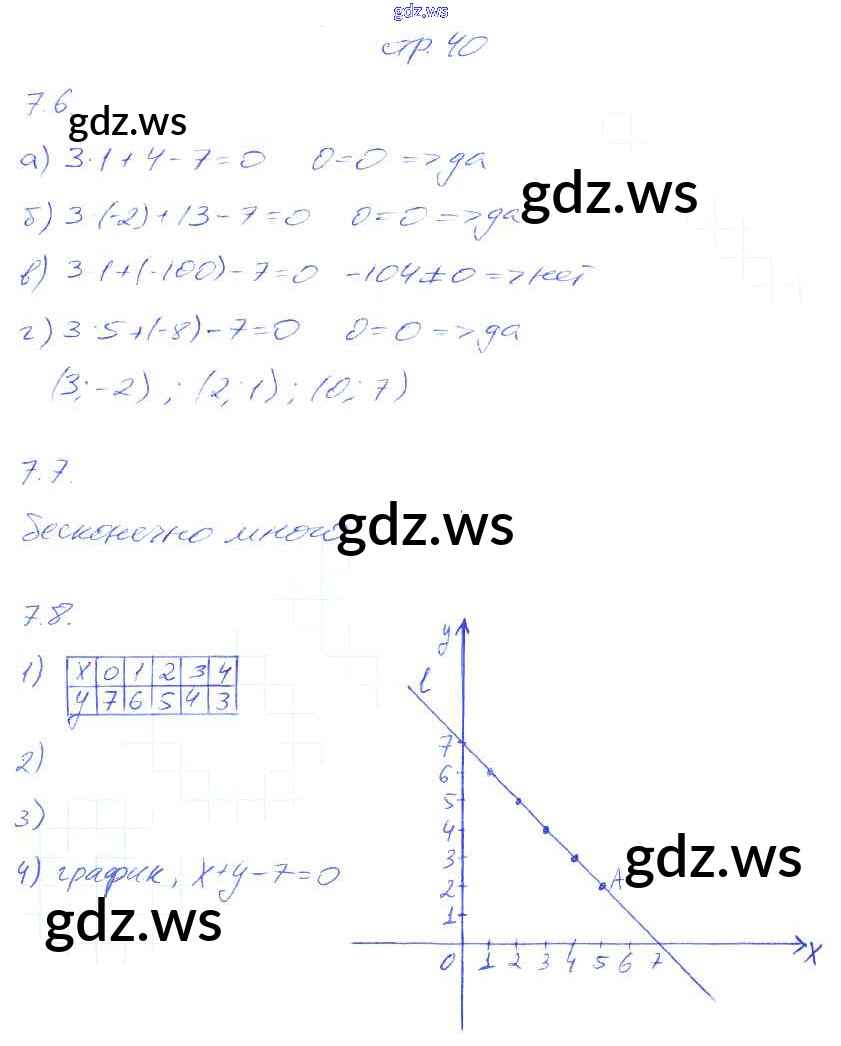 gdz.ws
стр. 40
7.6
gdz.ws
а) 3·1+4-7=0 0=0 =>да
gdz.ws
б) 3·(-2)+13-7=0 0=0 =>да
в) 3·1+(-100)-7=0 -104≠0 =>нет
г) 3·5+(-8)-7=0 0=0 =>да
(3;-2) ; (2;1) ; (0;7)
7.7.
бесконечно много
gdz.ws
7.8.
1)
x 0 1 2 3 4
y 7 6 5 4 3
2)
3)
4) график, x+y-7=0
gdz.ws
y
l
7
6
5
4
3
2
1
A
gdz.ws
0 1 2 3 4 5 6 7 x